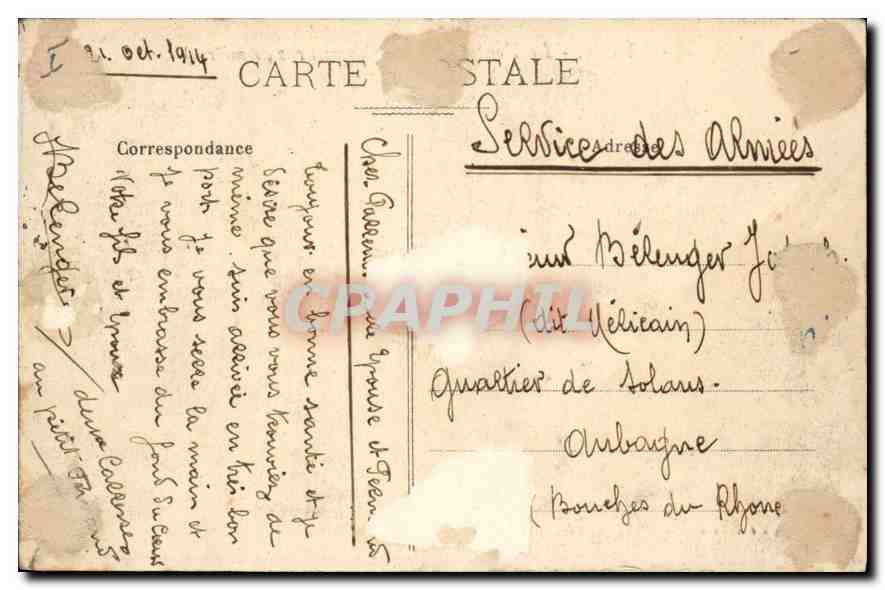 I
21. oct. 1914
CARTE STALE
Correspondance
Adresse
Service des Armées
Cher Parrens ma Epouse et
toujours en bonne santé et je
désire que vous vous trouviez de
même. suis arrivée en très bon
port Je vous serre la main et
Je vous embrasse du fond du Cœur
Votre fils et Epoux
Belenger
deux Caresses
au petit
ieur Bélenger
(dit Mélicain)
Quartier de Solans.
Aubagne
(Bouches du Rhone
CPAPHIL